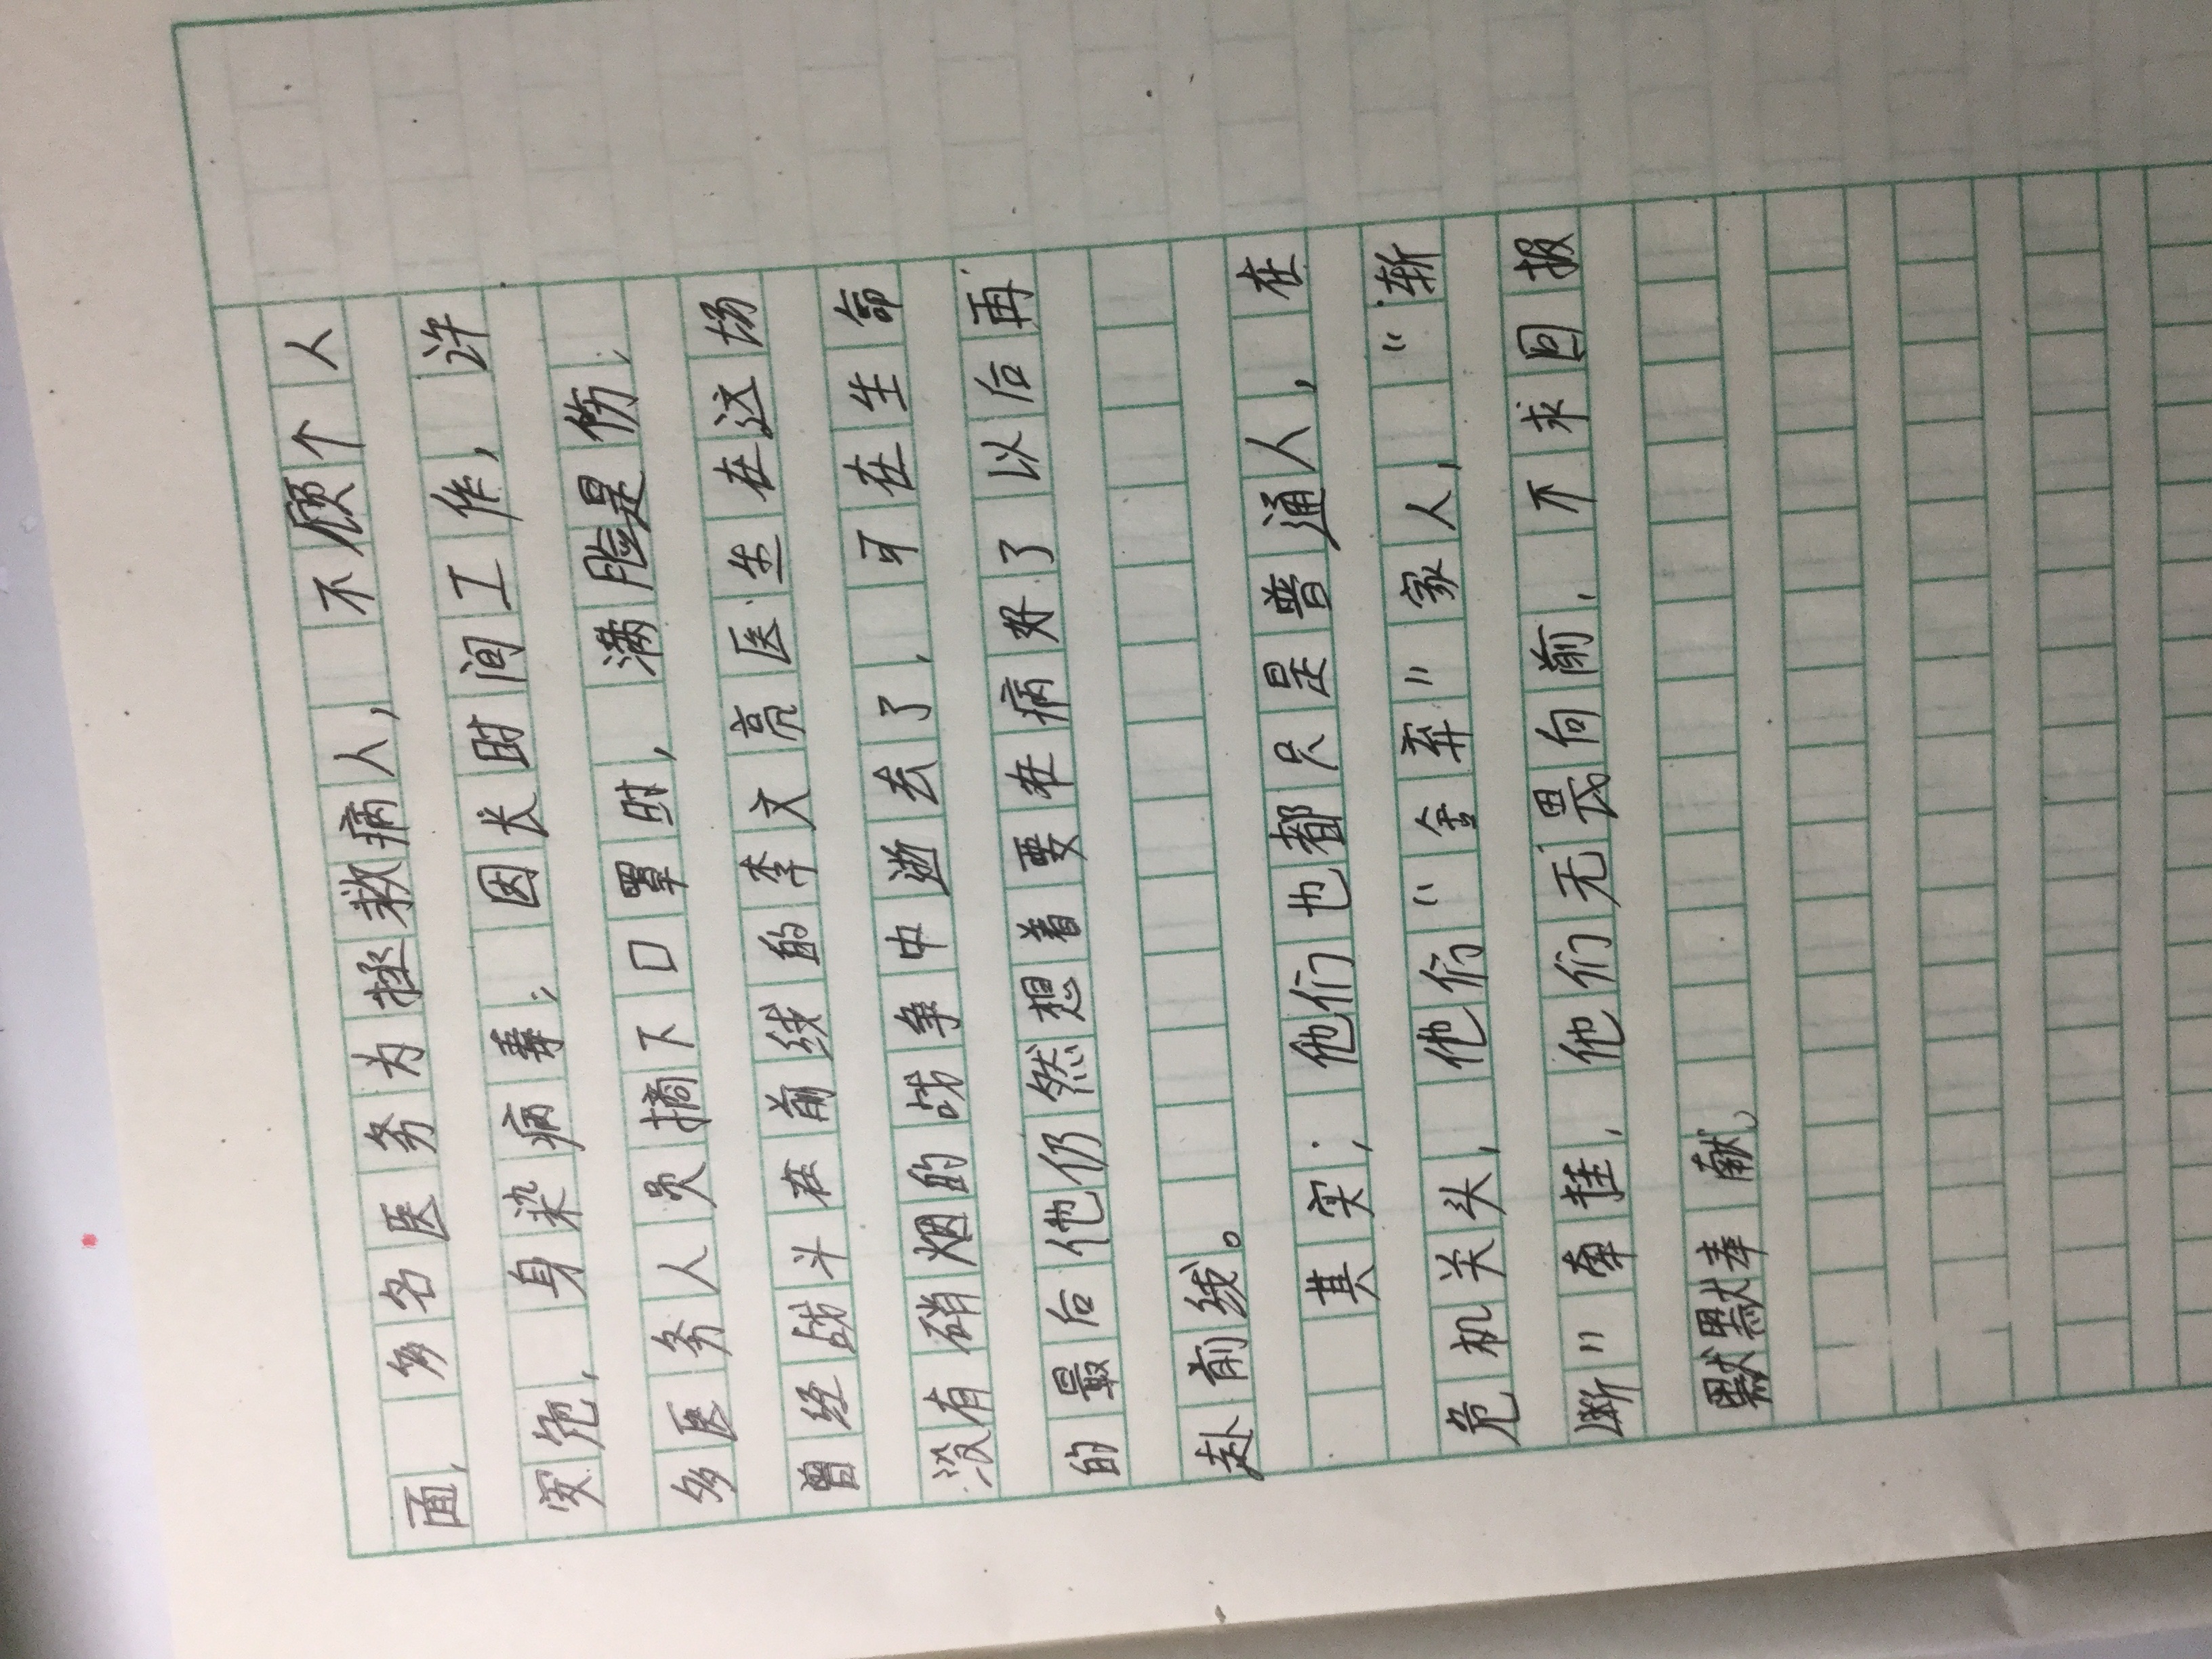 面，多名医务为拯救病人，不顾个人
安危，身染病毒；因长时间工作，许
多医务人员摘下口罩时，满脸是伤；
曾经战斗在前线的李文亮医生在这场
没有硝烟的战争中逝去了，可在生命
的最后他仍然想着要在病好了以后再
赴前线。
其实，他们也都只是普通人，在
危机关头，他们“舍弃”家人，“斩
断”牵挂，他们无畏向前，不求回报
默默奉献。